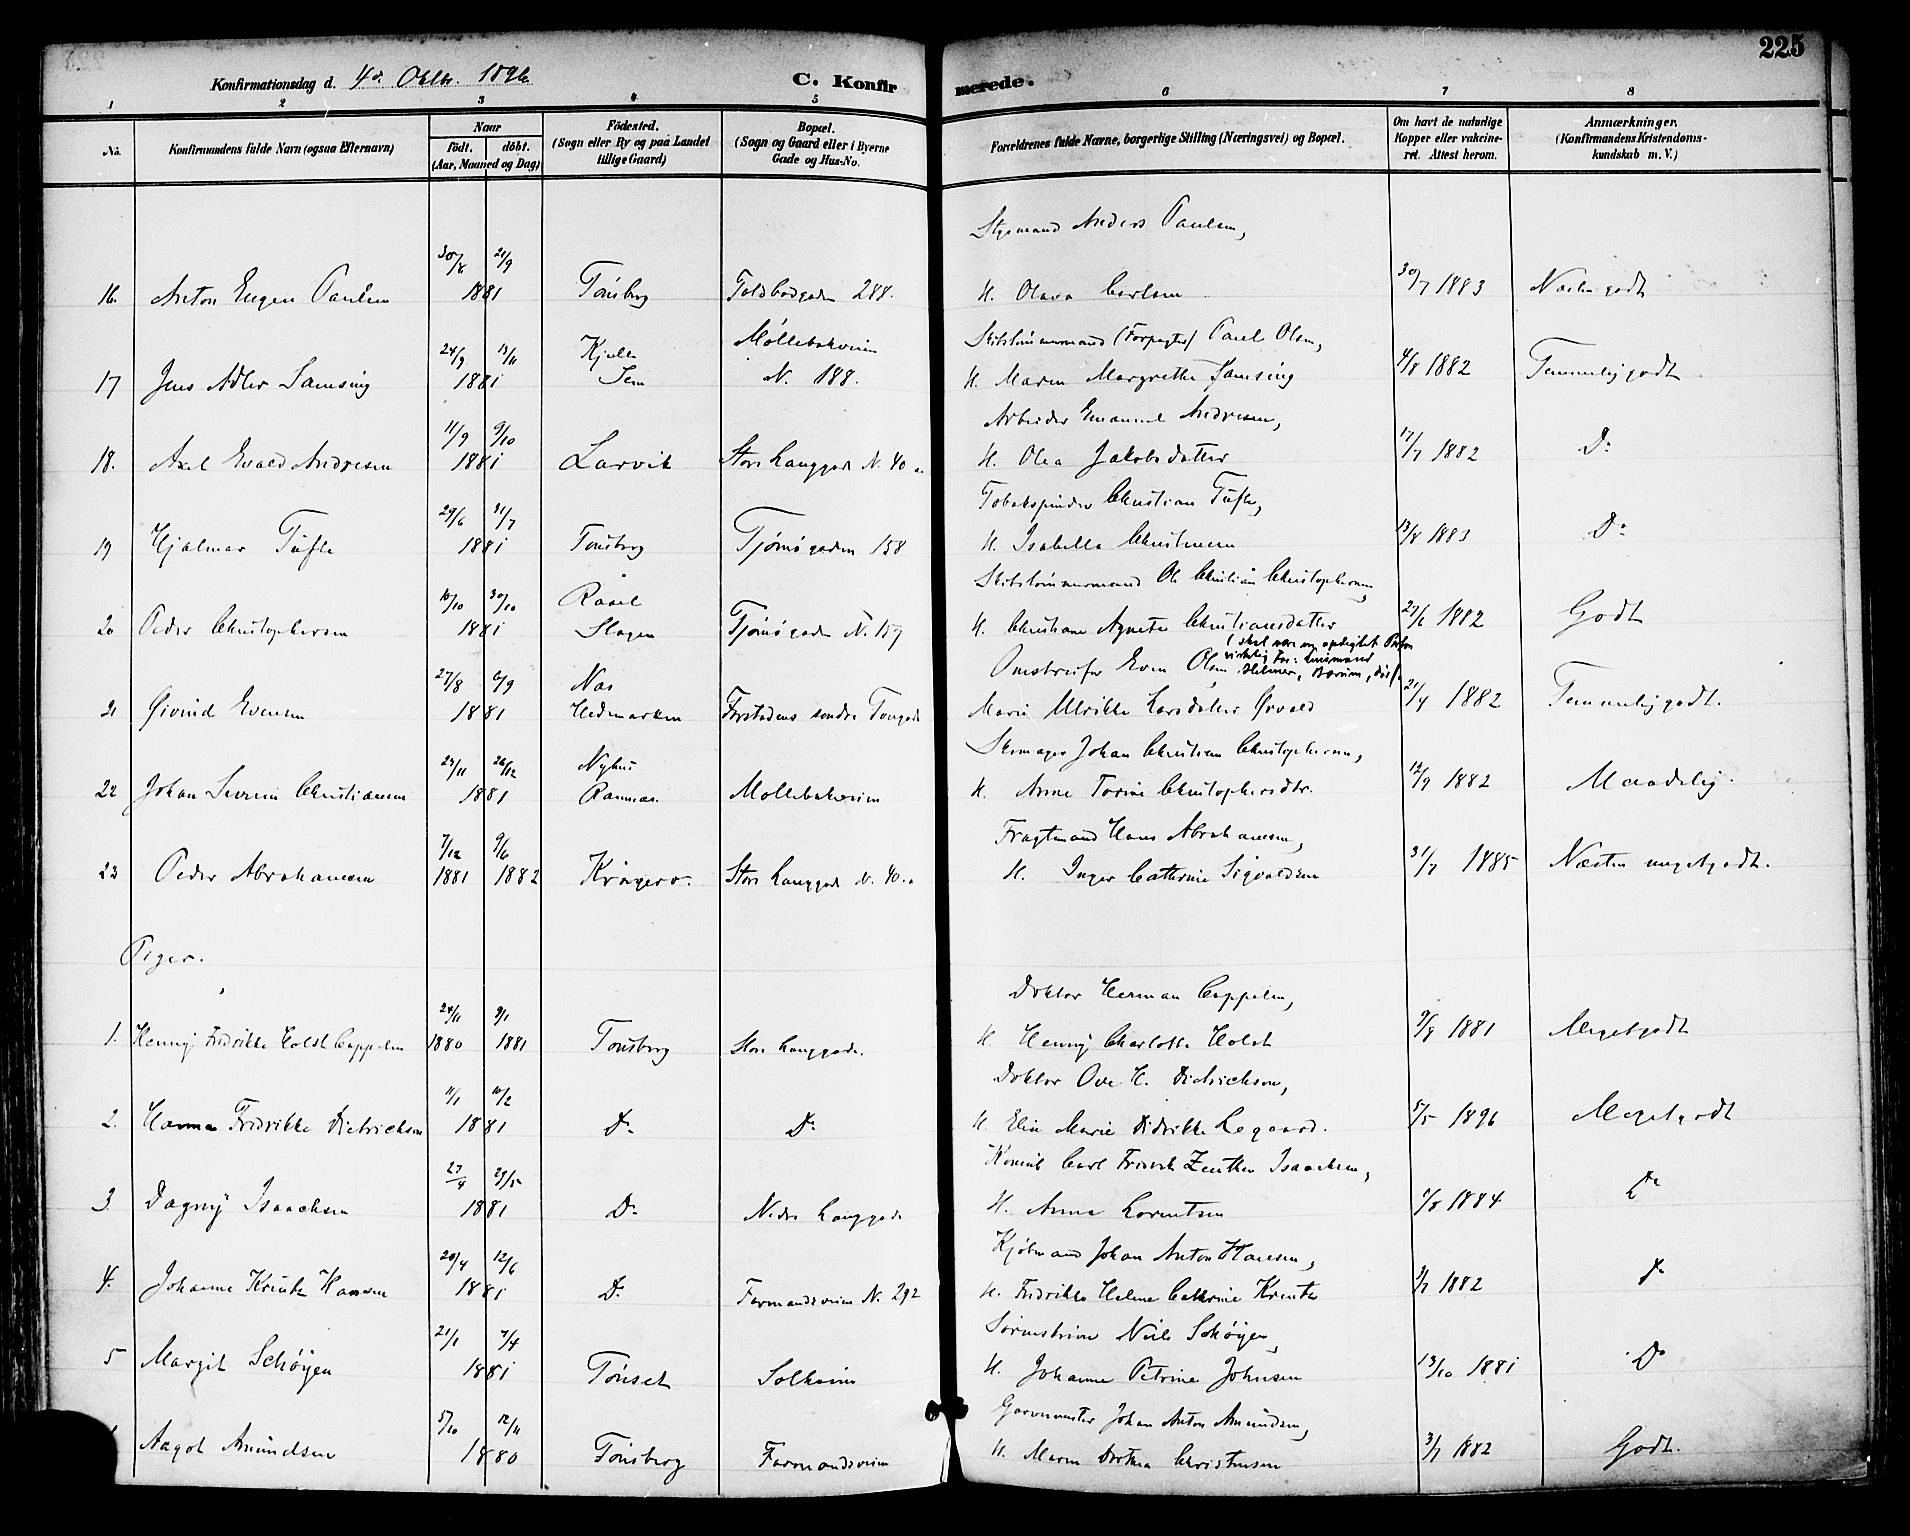 225
Konfirmationsdag d. 4de Oktbr. 1896.
C. Konfirmerede.
1 2 3 4 5 6 7 8
No.
Konfirmandens fulde Navn (ogsaa Efternavn)
Naar
født. døbt.
(Aar, Maaned og Dag)
Fødested.
(Sogn eller By og paa Landet
tillige Gaard)
Bopæl.
(Sogn og Gaard eller i Byerne
Gade og Hus-No.
Forældrenes fulde Navne, borgerlige Stilling (Næringsvei) og Bopæl.
Om havt de naturlige
Kopper eller vakcine-
ret. Attest herom.
Anmærkninger.
(Konfirmandens Kristendoms-
kundskab m. V.)
Styrmand Anders Paulsen,
30/8 21/9
16. Anton Eugen Paulsen 1881 Tønsberg Toldbodgaden 288. H. Olava Carlsen 30/7 1883 Næsten godt
24/9 13/11 Kjelle Møllebakveien Skibstømmermand (Forpagter) Paul Olsen,
17 Jens Adler Samsing 1881 Sem N. 188. H. Maren Margrethe Samsing 4/8 1882 Temmelig godt
11/9 9/10 Arbeider Emanuel Andresen,
18. Axel Evald Andresen 1881 Larvik Store Langgade N. 40 a H. Olea Jakobsdatter 17/7 1882 Do
29/6 31/7 Tobakspinder Christian Tufte,
19 Hjalmar Tufte 1881 Tønsberg Tjømøgaden 158 H. Isabella Christensen 13/8 1883 Do
10/10 30/10 Råel Skibstømmermand Ole Christian Christophersen,
20 Peder Christophersen 1881 Slagen Tjømøgaden N. 159 H. Christiane Agnete Christiansdatter 27/6 1882 Godt
(skal være en opdigtet Person
virkelig Far:
27/8 6/9 Nas Omstreifer Even Olsen
21 Øivind Evensen 1881 Hedmarken Forstadens søndre Tongade Marie Ulrikke Larsdatter Ørvald 21/4 1882 Temmelig godt.
23/11 26/12 Nyhus Skomager Johan Christian Christophersen,
22 Johan Severin Christiansen 1881 Ramnæs. Møllebakveien H. Anne Torine Christophersdtr. 12/9 1882 Maadelig.
7/12 9/6 Fragtmand Hans Abrahamsen,
23 Peder Abrahamsen 1881 1882 Kragerø. Store Langgade N. 40. a H. Inger Cathrine Sigvaldsen 31/7 1885 Næsten megetgodt.
Piger.
24/11 9/1 Doktor Herman Cappelen,
1. Henny Fredrikke Holst Cappelen 1880 1881 Tønsberg Store Langgade. H. Henny Charlotte Holst 9/8 1881 Megetgodt
11/1 10/2 Doktor Ove H. Dietrichson,
2. Hanna Fredrikke Dietrichson 1881 Do Do H. Elin Marie Didrikke Legaard. 5/5 1896 Megetgodt
27/4 29/5 Konsul Carl Fredrik Zeuthen Isaachsen,
3. Dagny Isaachsen 1881 Do Nedre Langgade H. Anna Lorentsen 7/8 1884 Do
20/4 12/6 Kjøbmand Johan Anton Hansen,
4. Johanne Kreutz Hansen 1881 Do Farmandsveien N. 292 H. Fredrikke Helene Cathrine Kreutz 3/7 1882 Do
21/1 7/4 Sorenskriver Niels Schøyen,
5 Margit Schøyen 1881 Tønset Solheim H. Johanne Petrine Johnsen 13/10 1881 Do
5/10 12/11 Garvermester Johan Anton Amundsen,
Aagot Amundsen 1880 Tønsberg Farmandsveien H. Maren Dorthea Christensen 3/7 1882 Godt.